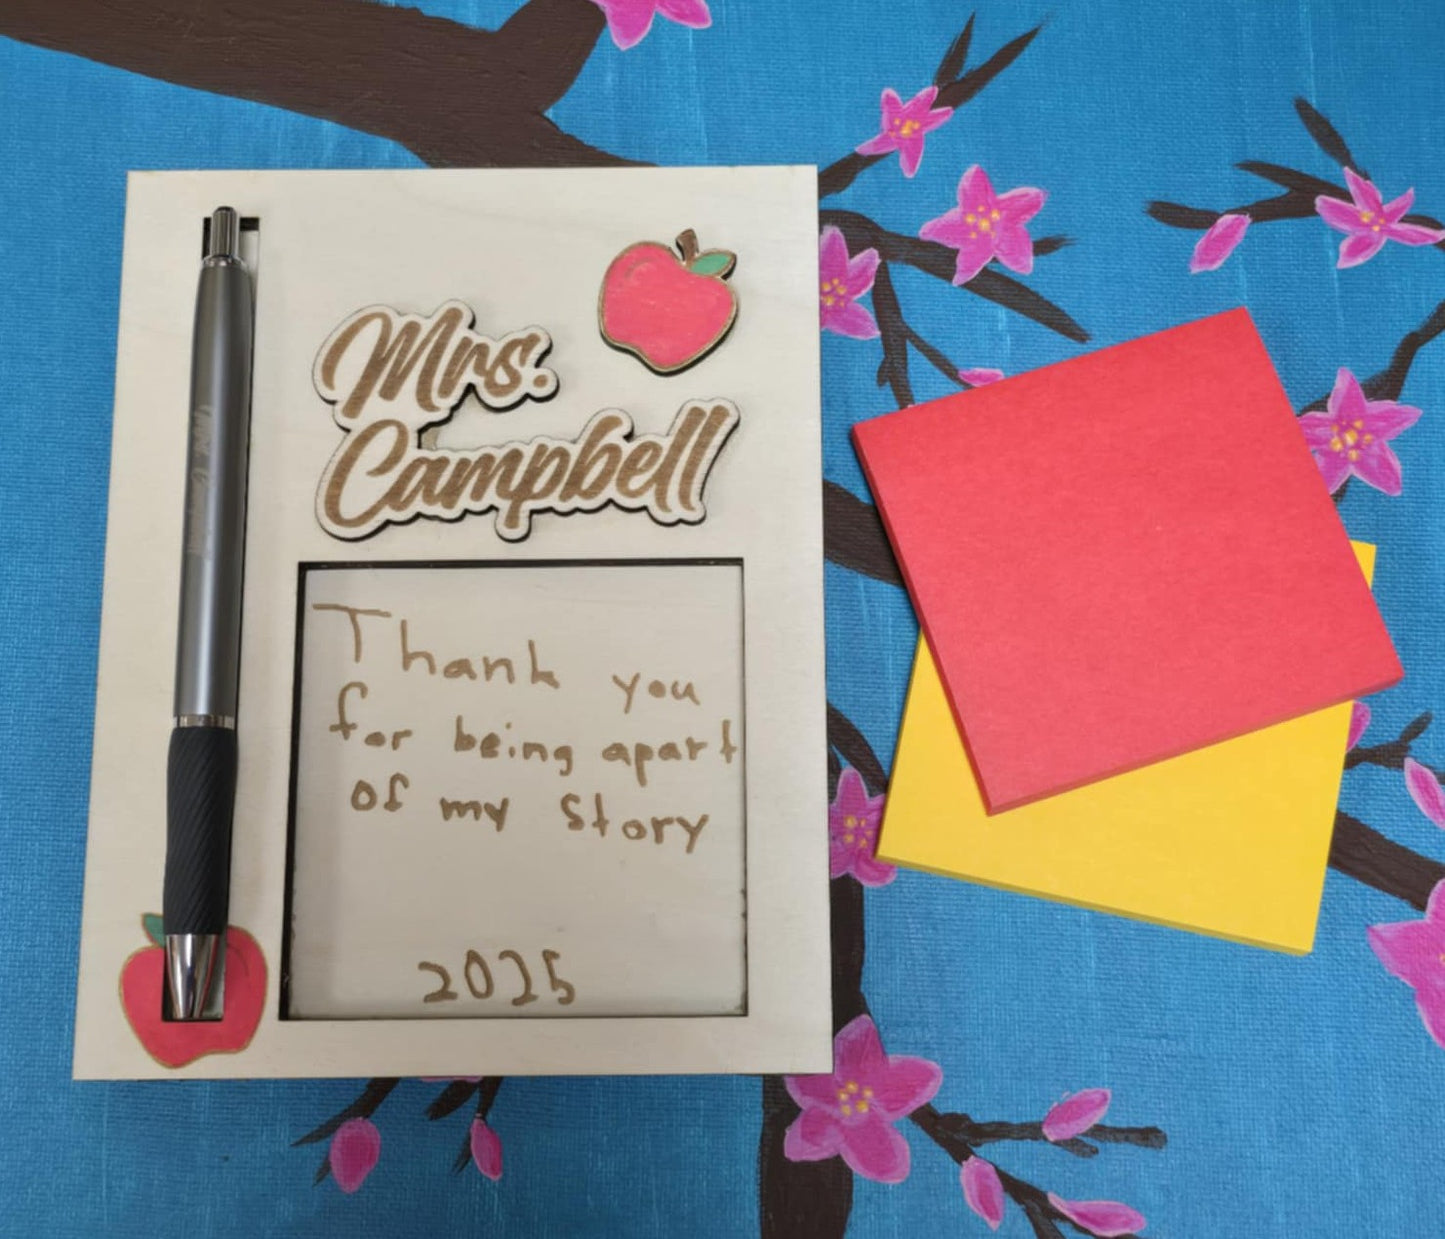 Mrs.
Campbell
Thank you
for being apart
of my story
2025